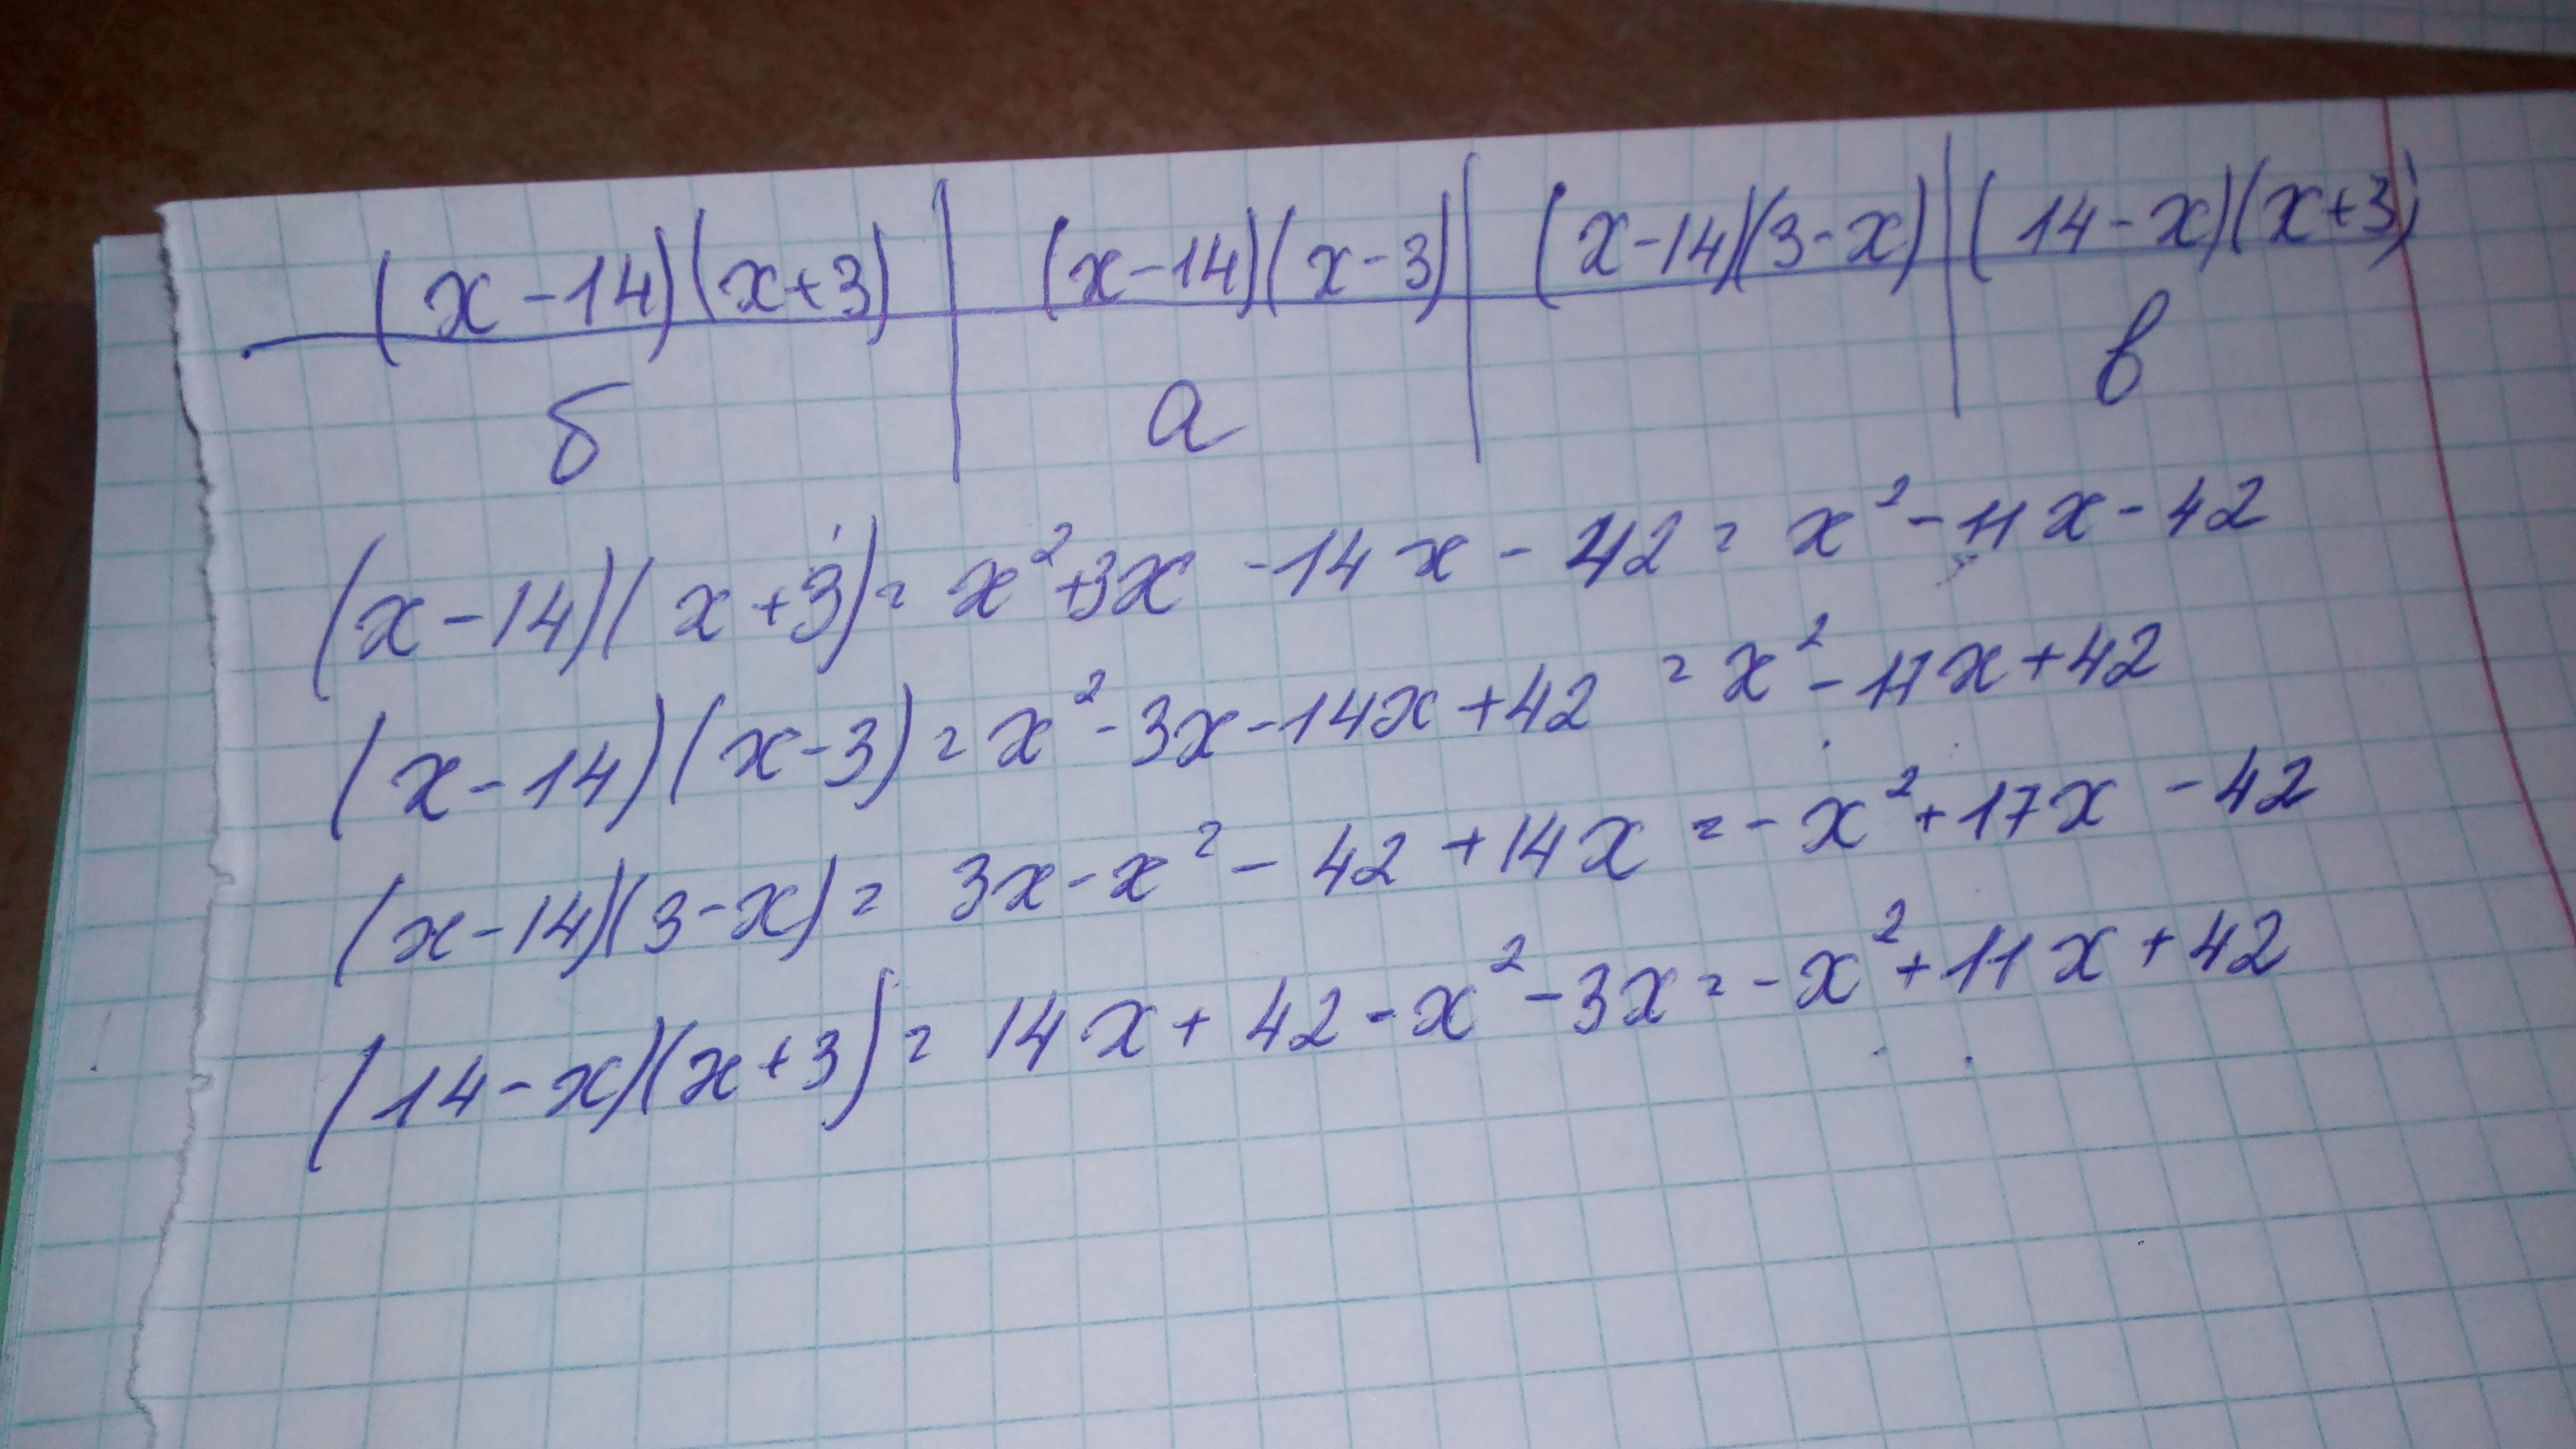 (x-14)(x+3) | (x-14)(x-3) | (x-14)(3-x) | (14-x)(x+3)
б | а | | в
(x-14)(x+3) = x²+3x -14x - 42 = x² - 11x - 42
(x-14)(x-3) = x² - 3x - 14x + 42 = x² - 17x + 42
(x-14)(3-x) = 3x - x² - 42 + 14x = - x² + 17x - 42
(14-x)(x+3) = 14x + 42 - x² - 3x = - x² + 11x + 42